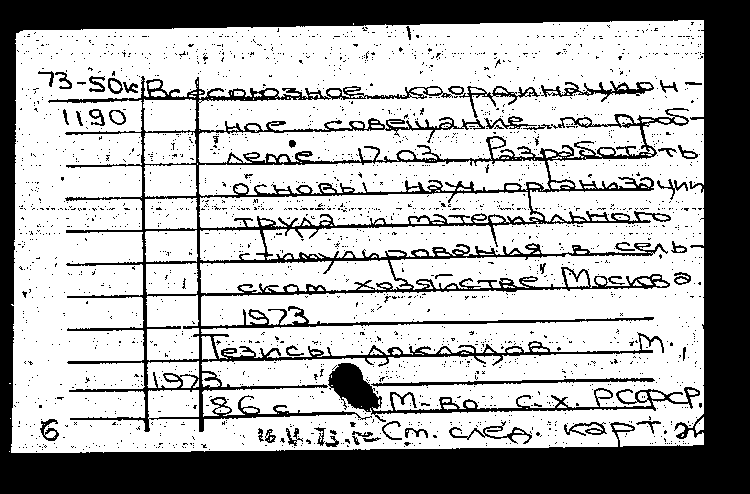 73-50к Всесоюзное координацион-
1190 ное совещание по проб-
леме 17.03 "Разработать
основы науч. организации
труда и материального
стимулирования в сель-
ском хозяйстве". Москва.
1973.
Тезисы докладов. М.,
1973.
86 с. М-во с.х. РСФСР.
6 См. след. карт.